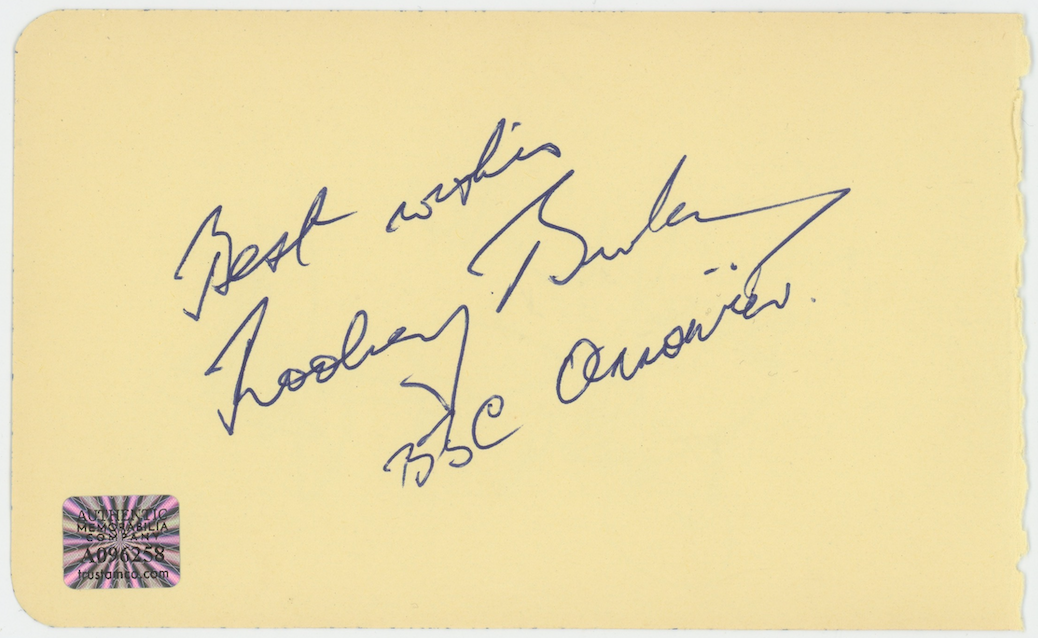 Best wishes
Rodney Burke
BBC Announcer.
AUTHENTIC
MEMORABILIA
COMPANY
A096258
trustamco.com